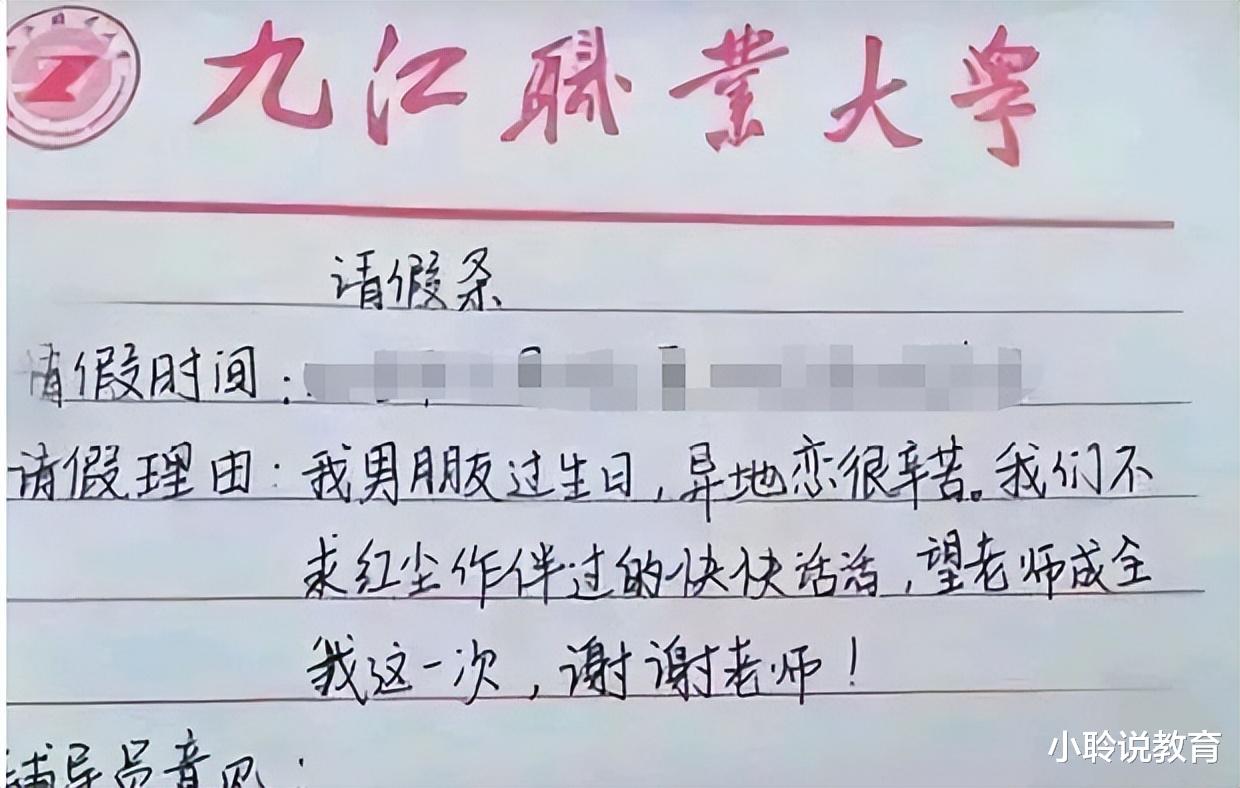 九江職業大學
请假条
请假时间：
请假理由：我男朋友过生日，异地恋很辛苦。我们不
求红尘作伴过的快快活活，望老师成全
我这一次，谢谢老师！
辅导员意见：
小聆说教育